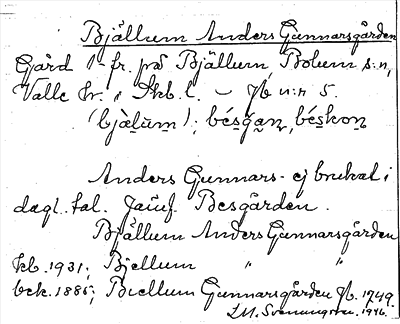 Bjällum Anders Gunnarsgården
Gård 1 fr. på Bjällum, Bolum s:n,
Valle hr., Skb. l. – Jb n:r 5.
(bjälum); bésgan, béskon
Anders Gunnars- ej brukat i
dagl. tal. Jämf. Besgården.
Bjällum Anders Gunnarsgården
kb. 1931; Bjellum " "
bck. 1885; Biellum Gunnarsgården Jb. 1749.
1946.